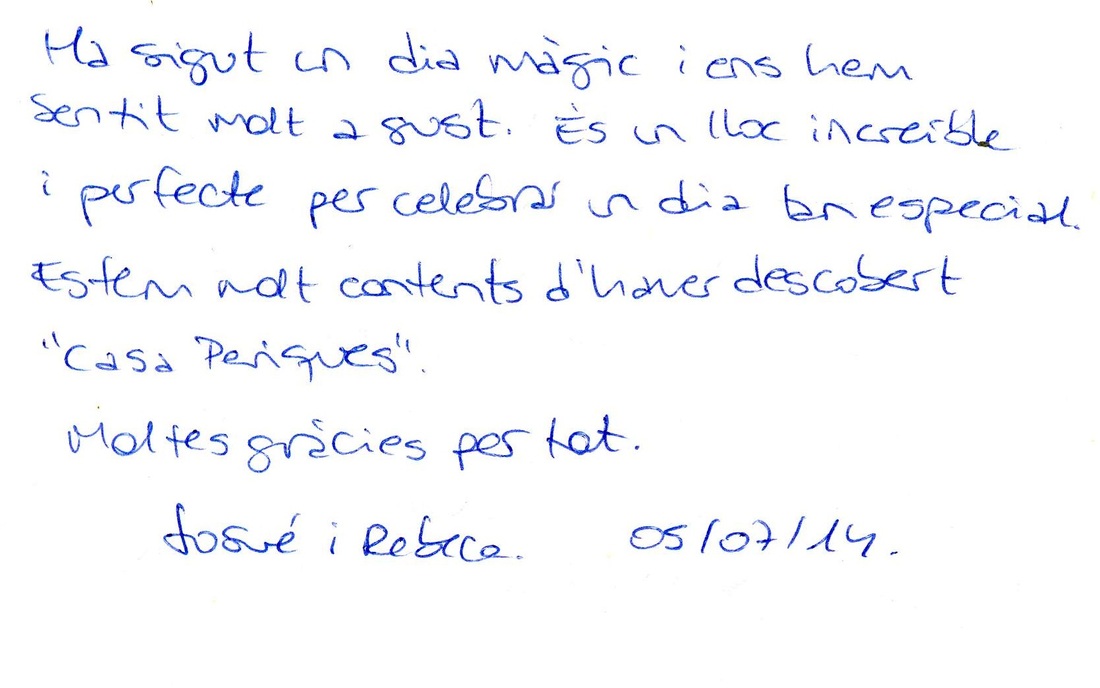 Ha sigut un dia màgic i ens hem
sentit molt a gust. És un lloc increible
i perfecte per celebrar un dia tan especial.
Estem molt contents d'haver descobert
"Casa Perigues".
Moltes gràcies per tot.
Josué i Rebeca. 05/07/14.